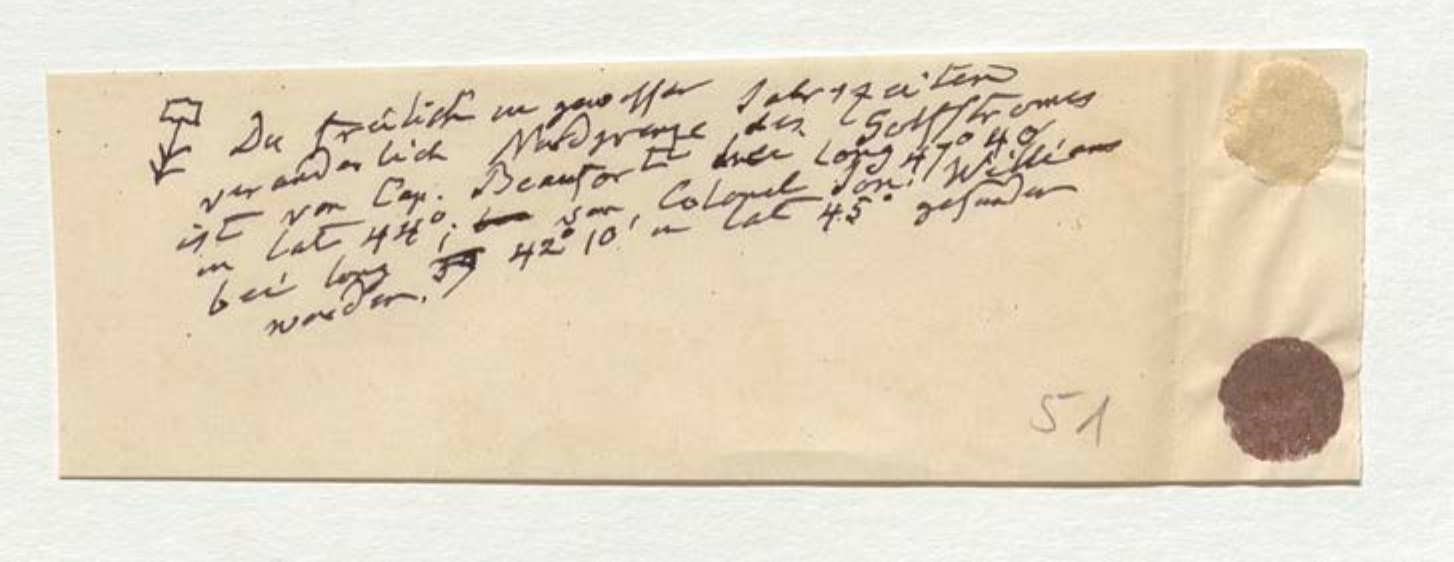 Die freilich in gewisser Jahrszeiten
veranderlich Nordgrenze des Golfstromes
ist von Cap. Beaufort bei Long 47° 40'
in Lat 44°; von Colonel Jon. Williams
bei long 42° 10' in lat 45° gefunden
worden.
51